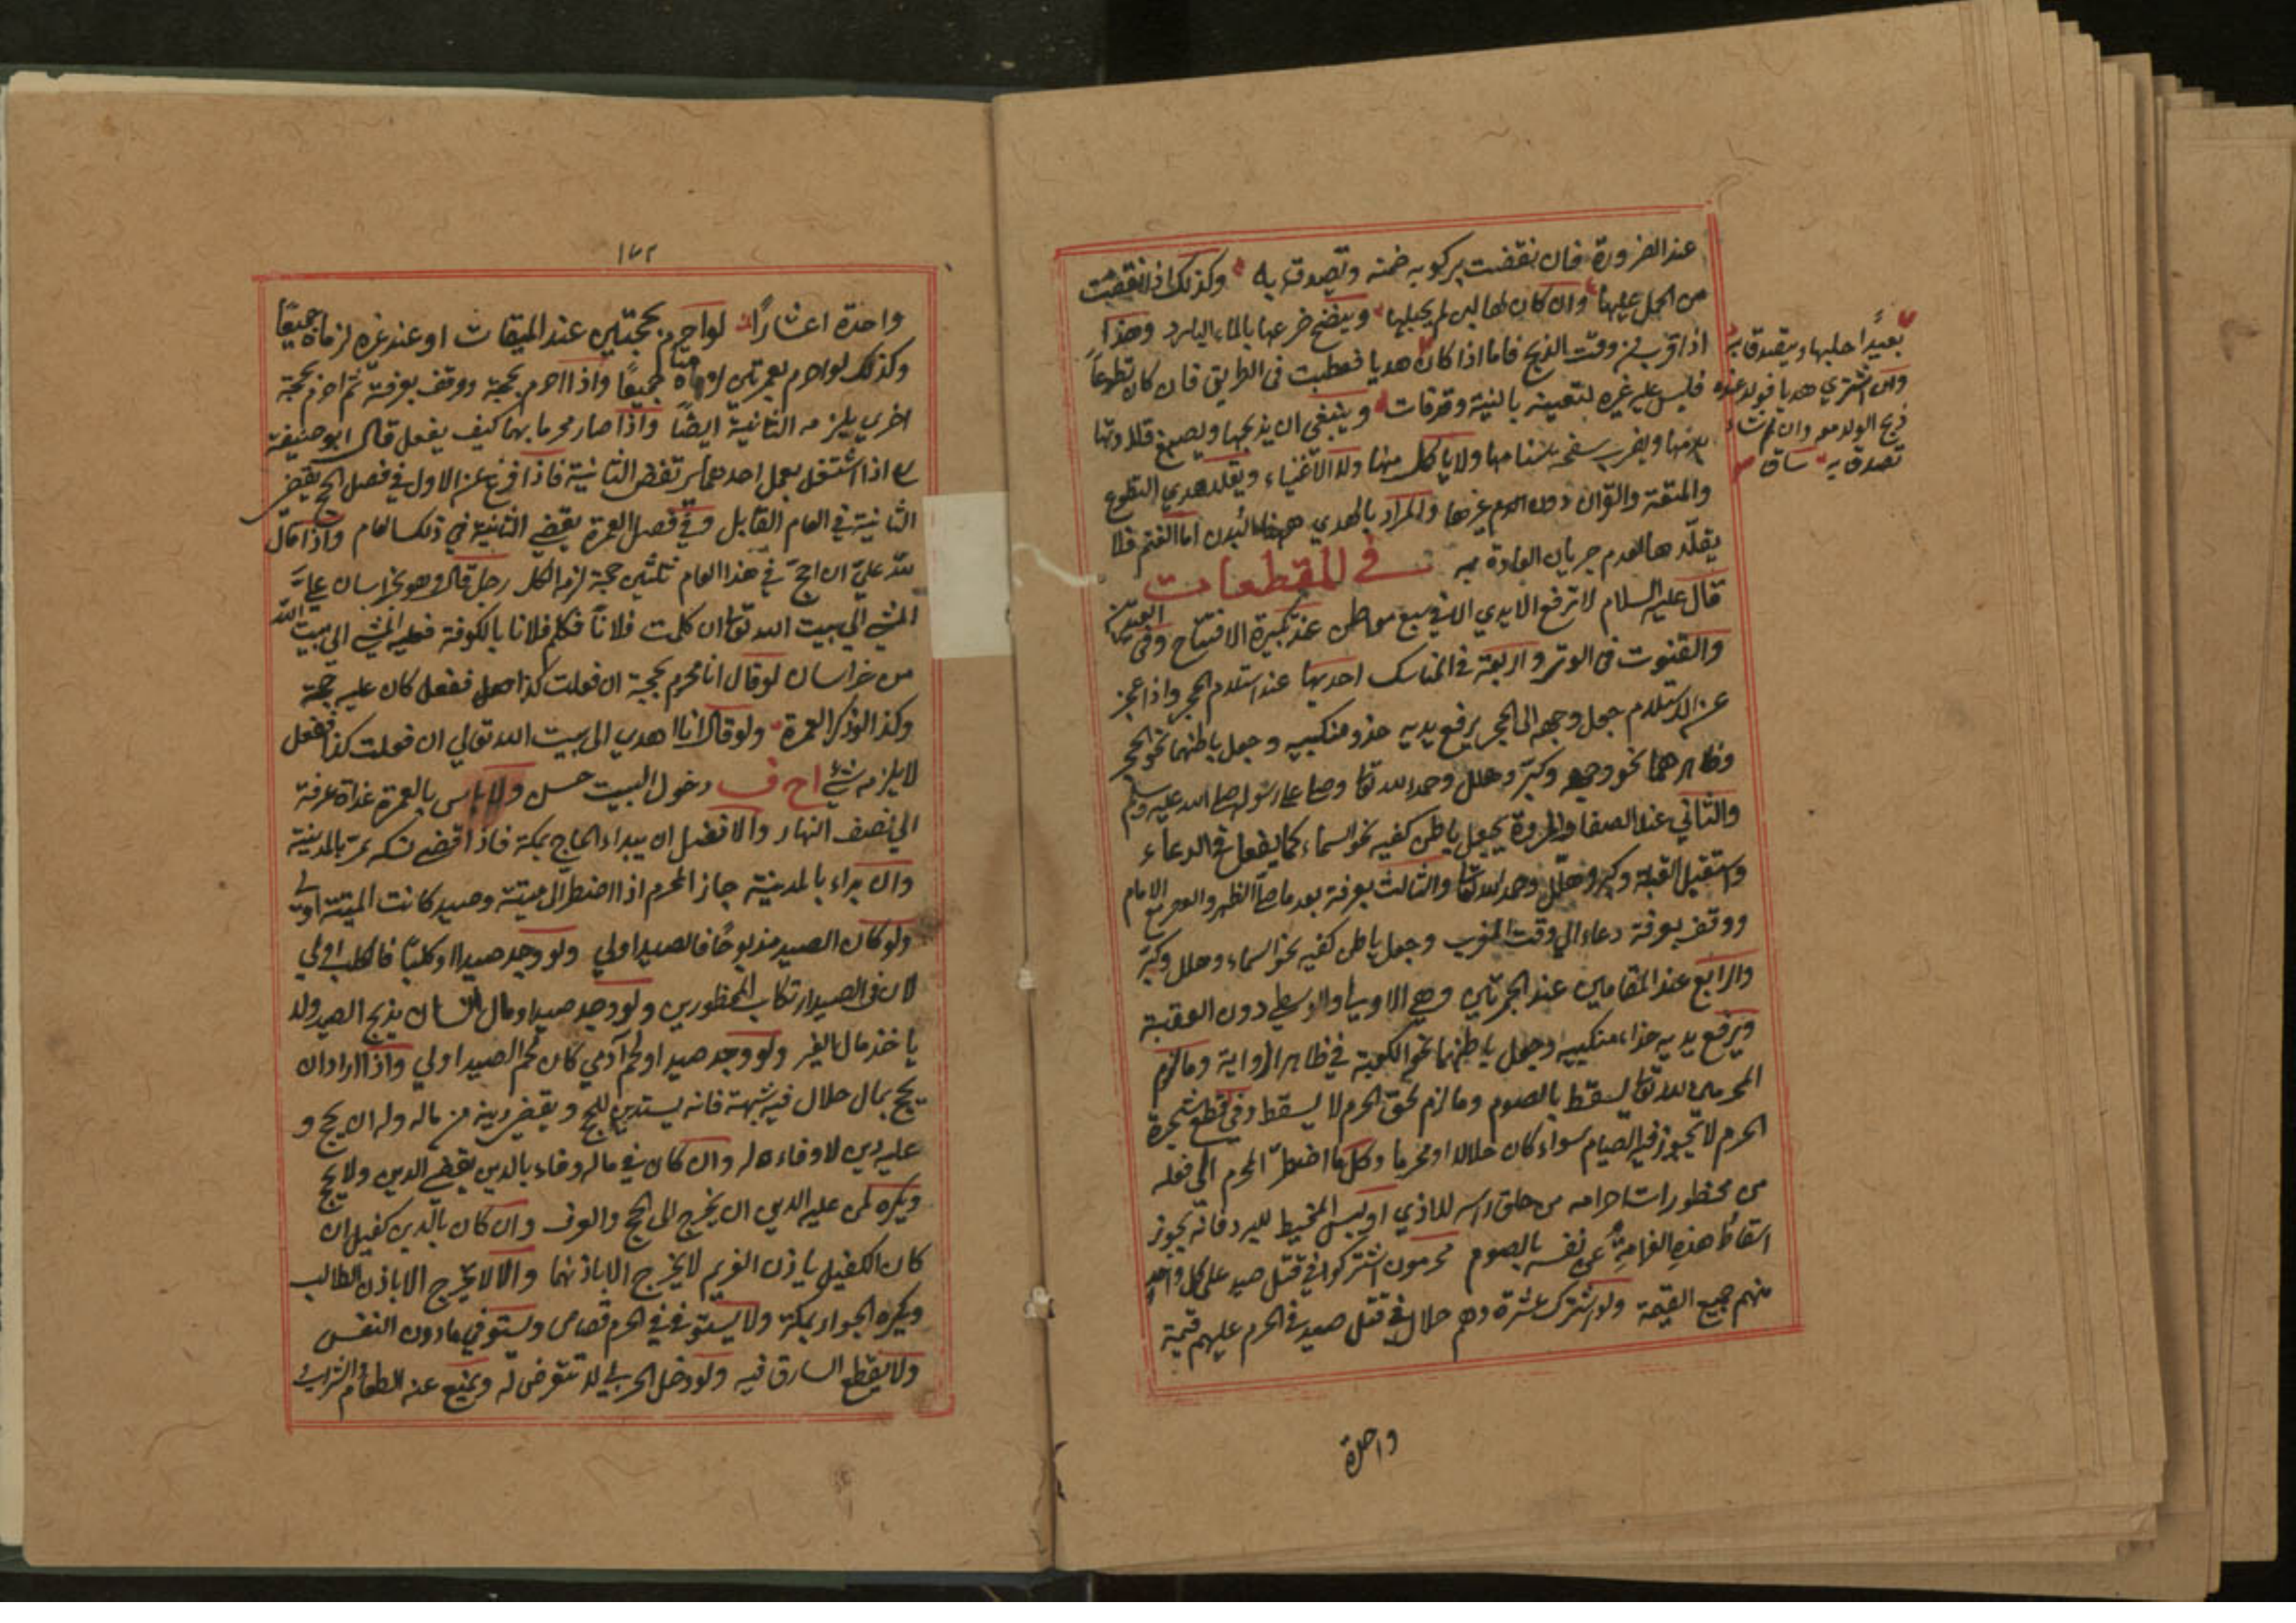 عند الضرورة فان نقضت بركوبه ضمنه وتصدق به وكذلك اذا نقضت
من الحمل عليها وان كان لها لبن لم يحلبها وينضح ضرعها بالماء البارد وهذا
اذا قرب من وقت الذبح فاما اذا كان هديا فعطبت في الطريق فان كان تطوعاً
فليس عليه غيره لتعينه بالنية وقد فات وينبغي ان يذبحها ويصبغ قلادتها
بدمها ويضرب صفحة سنامها ولا يأكل منها ولا الاغنياء ويقلد هدي التطوع
والمتعة والقران دون الدم غيرها والمراد بالهدي ههنا البدن اما الغنم فلا
يقلّدها لعدم جريان العادة به في المقطعات
قال عليه السلام لا ترفع الايدي الا في سبع مواطن عند تكبيرة الافتتاح وفي العيدين
والقنوت في الوتر واربعة في المناسك احديها عند استلام الحجر واذا عجز
عن الاستلام جعل وجهه الى الحجر يرفع يديه حذو منكبيه وجعل باطنهما نحو الحجر
وظاهرهما نحو وجهه وكبّر وهلل وحمد الله تعا وصلى على رسوله صلى الله عليه وسلم
والثاني عند الصفا والمروة يجعل باطن كفيه نحو السماء كما يفعل في الدعاء
واستقبل القبلة وكبر وهلّل وحمد الله تعا والثالث بعرفة بعد ما صلّى الظهر والعصر مع الامام
ووقف بعرفة دعا الى وقت المغرب وجعل باطن كفيه نحو السماء وهلل وكبّر
والرابع عند المقامين عند الجمرتين وهي الاولى والوسطى دون العقبة
ويرفع يديه حذاء منكبيه وجعل باطنهما نحو الكعبة في ظاهر الرواية وما لزم
المحرمين لله تعا يسقط بالصوم وما لزم لحق الحرم لا يسقط وفي قطع شجرة
الحرم لا يجوز فيه الصيام سواء كان حلالا او محرما وكل ما اضطرّ المحرم الى فعله
من محظورات احرامه من حلق راسه للاذي او لبس المخيط للبرد فانّه يجوز
اسقاط هذه الغرامة عن نفسه بالصوم محرمون اشتركوا في قتل صيد على كل واحد
منهم جميع القيمة ولو اشترك عشرة وهم حلال في قتل صيد في الحرم عليهم قيمة
واحدة
بعيداً حلبها ويتصدق به
وان اشتري هديا فولد عنده
ذبح الولد معه وان شاء
تصدق به
١٧٢
واحدة اعشاراً لو احرم بحجتين عند الميقات او عند غيره لزماه جميعًا
وكذلك لو احرم بعمرتين لزمتاه جميعًا واذا احرم بحجة ووقف بعرفة ثم احرم بحجة
اخري يلزمه الثانية ايضًا واذا صار محرما بهما كيف يفعل قال ابو حنيفة
اذا اشتغل بعمل احدهما يرتفض الثانية فاذا فرغ عن الاول في فصل الحج يقضي
الثانية في العام القابل وفي فصل العمرة يقضي الثانية في ذلك العام واذا قال
لله عليّ ان احجّ في هذا العام ثلثين حجة لزمه الكل رجل قال وهو بخراسان عليّ
المشي الى بيت الله تعا ان كلمت فلاناً فكلم فلانا بالكوفة فعليه المشي الى بيت الله
من خراسان لو قال انا محرم بحجة ان فعلت كذا ففعل كان عليه حجة
وكذا لو ذكر العمرة ولو قال انا اهدي الى بيت الله تعالي ان فعلت كذا ففعل
لا يلزمه شيء دخول البيت حسن ولا باس بالعمرة غداة عرفة
الي نصف النهار والافضل ان يبداء الحاج بمكة فاذا قضى نسكه مرّ بالمدينة
وان بداء بالمدينة جاز المحرم اذا اضطر الى ميتة وصيد كانت الميتة اولى
ولو كان الصيد مذبوحًا فالصيد اولي ولو وجد صيدا او كلبًا فالكلب اولي
لان في الصيد ارتكاب المحظورين ولو وجد صيدا ومال انسان يذبح الصيد ولا
ياخذ مال الغير ولو وجد صيدا ولحم آدمي كان لحم الصيد اولي واذا اراد ان
يحج بمال حلال فيه شبهة فانه يستدين للحج ويقضي دينه من ماله وله ان يحج و
عليه دين لا وفاء له وان كان في ماله وفاء بالدين يقضي الدين ولا يحج
ويكره لمن عليه الدين ان يخرج الى الحج والغزو وان كان بالدين كفيل ان
كان الكفيل باذن الغريم لا يخرج الا باذنهما والا لا يخرج الا باذن الطالب
ويكره الجوار بمكة ولا يستوفى في الحرم قصاص ويستوفي ما دون النفس
ولا يقطع السارق فيه ولو دخل الحربي لا تتعرض له ويمنع عنه الطعام والشراب